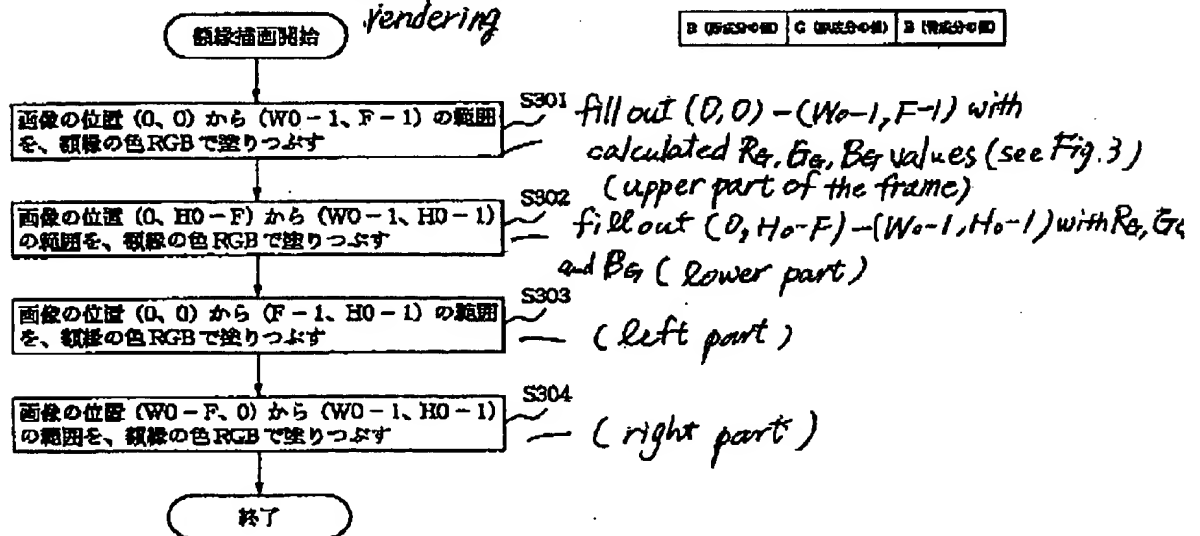 額縁描画開始
rendering
R (赤成分の値) G (緑成分の値) B (青成分の値)
S301
画像の位置 (0、0) から (W0-1、F-1) の範囲
を、額縁の色RGBで塗りつぶす
fill out (0,0)-(W0-1, F-1) with
calculated RG, GG, BG values (see Fig. 3)
(upper part of the frame)
S302
画像の位置 (0、H0-F) から (W0-1、H0-1)
の範囲を、額縁の色RGBで塗りつぶす
fill out (0, H0-F)-(W0-1, H0-1) with RG, GG
and BG (lower part)
S303
画像の位置 (0、0) から (F-1、H0-1) の範囲
を、額縁の色RGBで塗りつぶす
(left part)
S304
画像の位置 (W0-F、0) から (W0-1、H0-1)
の範囲を、額縁の色RGBで塗りつぶす
(right part)
終了